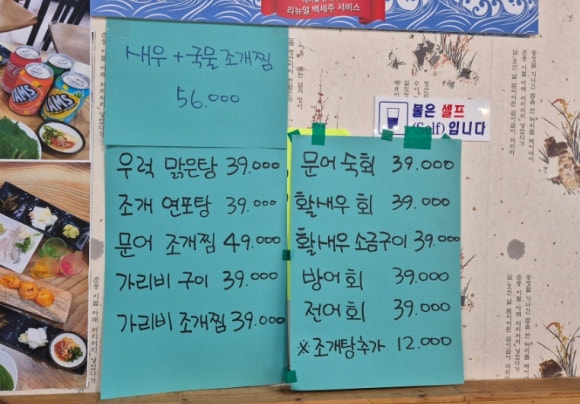 리뉴얼 백제주 서비스
새우 + 국물 조개찜
56.000
물은 셀프
(Self) 입니다
우럭 맑은탕 39.000
조개 연포탕 39.000
문어 조개찜 49.000
가리비 구이 39.000
가리비 조개찜 39.000
문어 숙회 39.000
활새우 회 39.000
활새우 소금구이 39.000
방어회 39.000
전어회 39.000
※조개탕추가 12.000